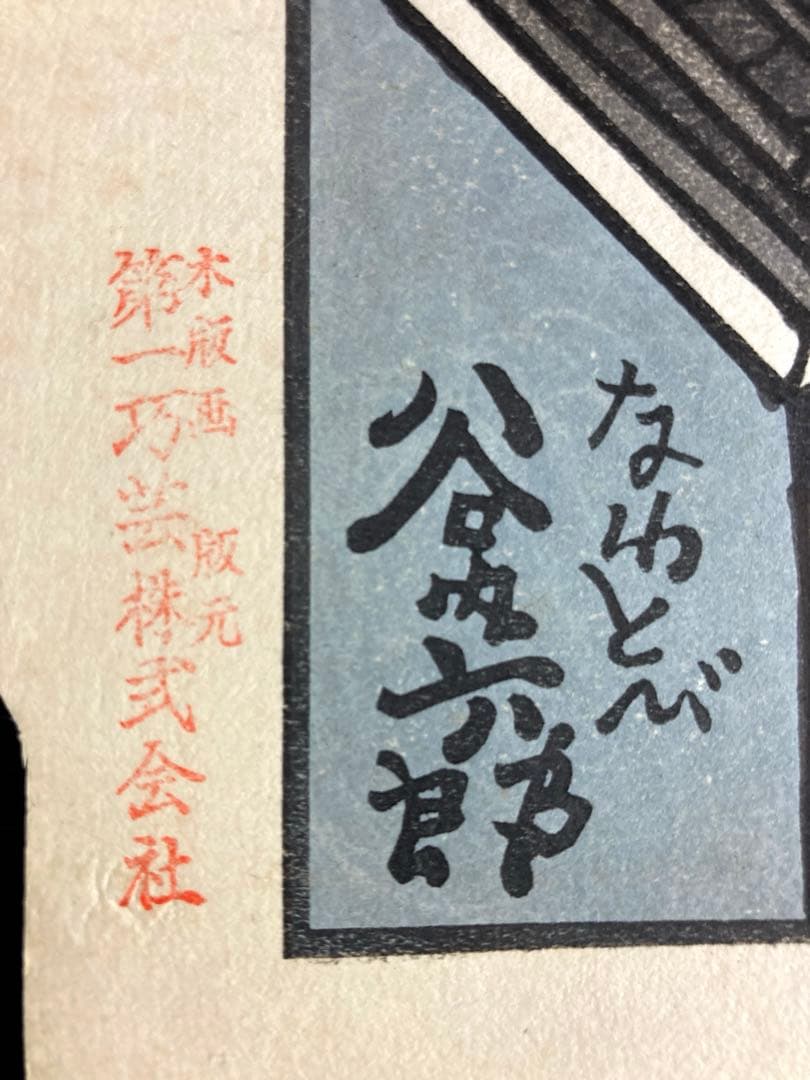 なわとび
谷内六郎
木版画 版元
第一巧芸株式会社